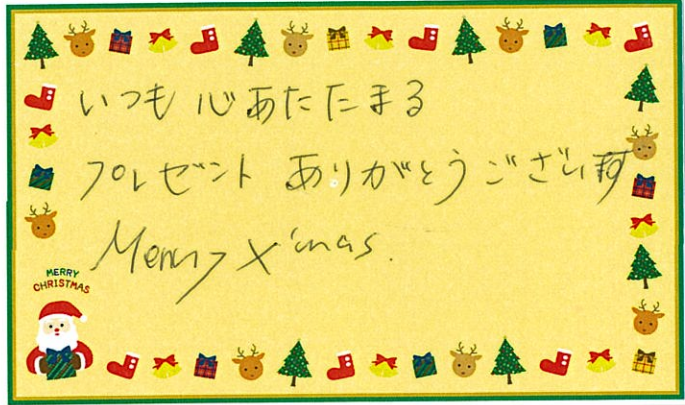 いつも心あたたまる
プレゼント ありがとうございます
Merry X'mas.
MERRY
CHRISTMAS